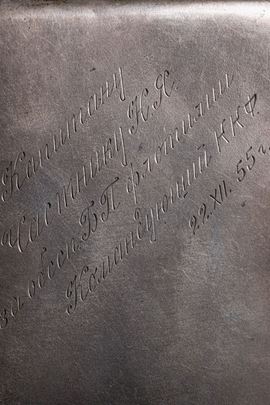 Капитану
Частнику Н.Я.
за обесп. БП флотилии
Командующий ККФ
22.XII.55г.